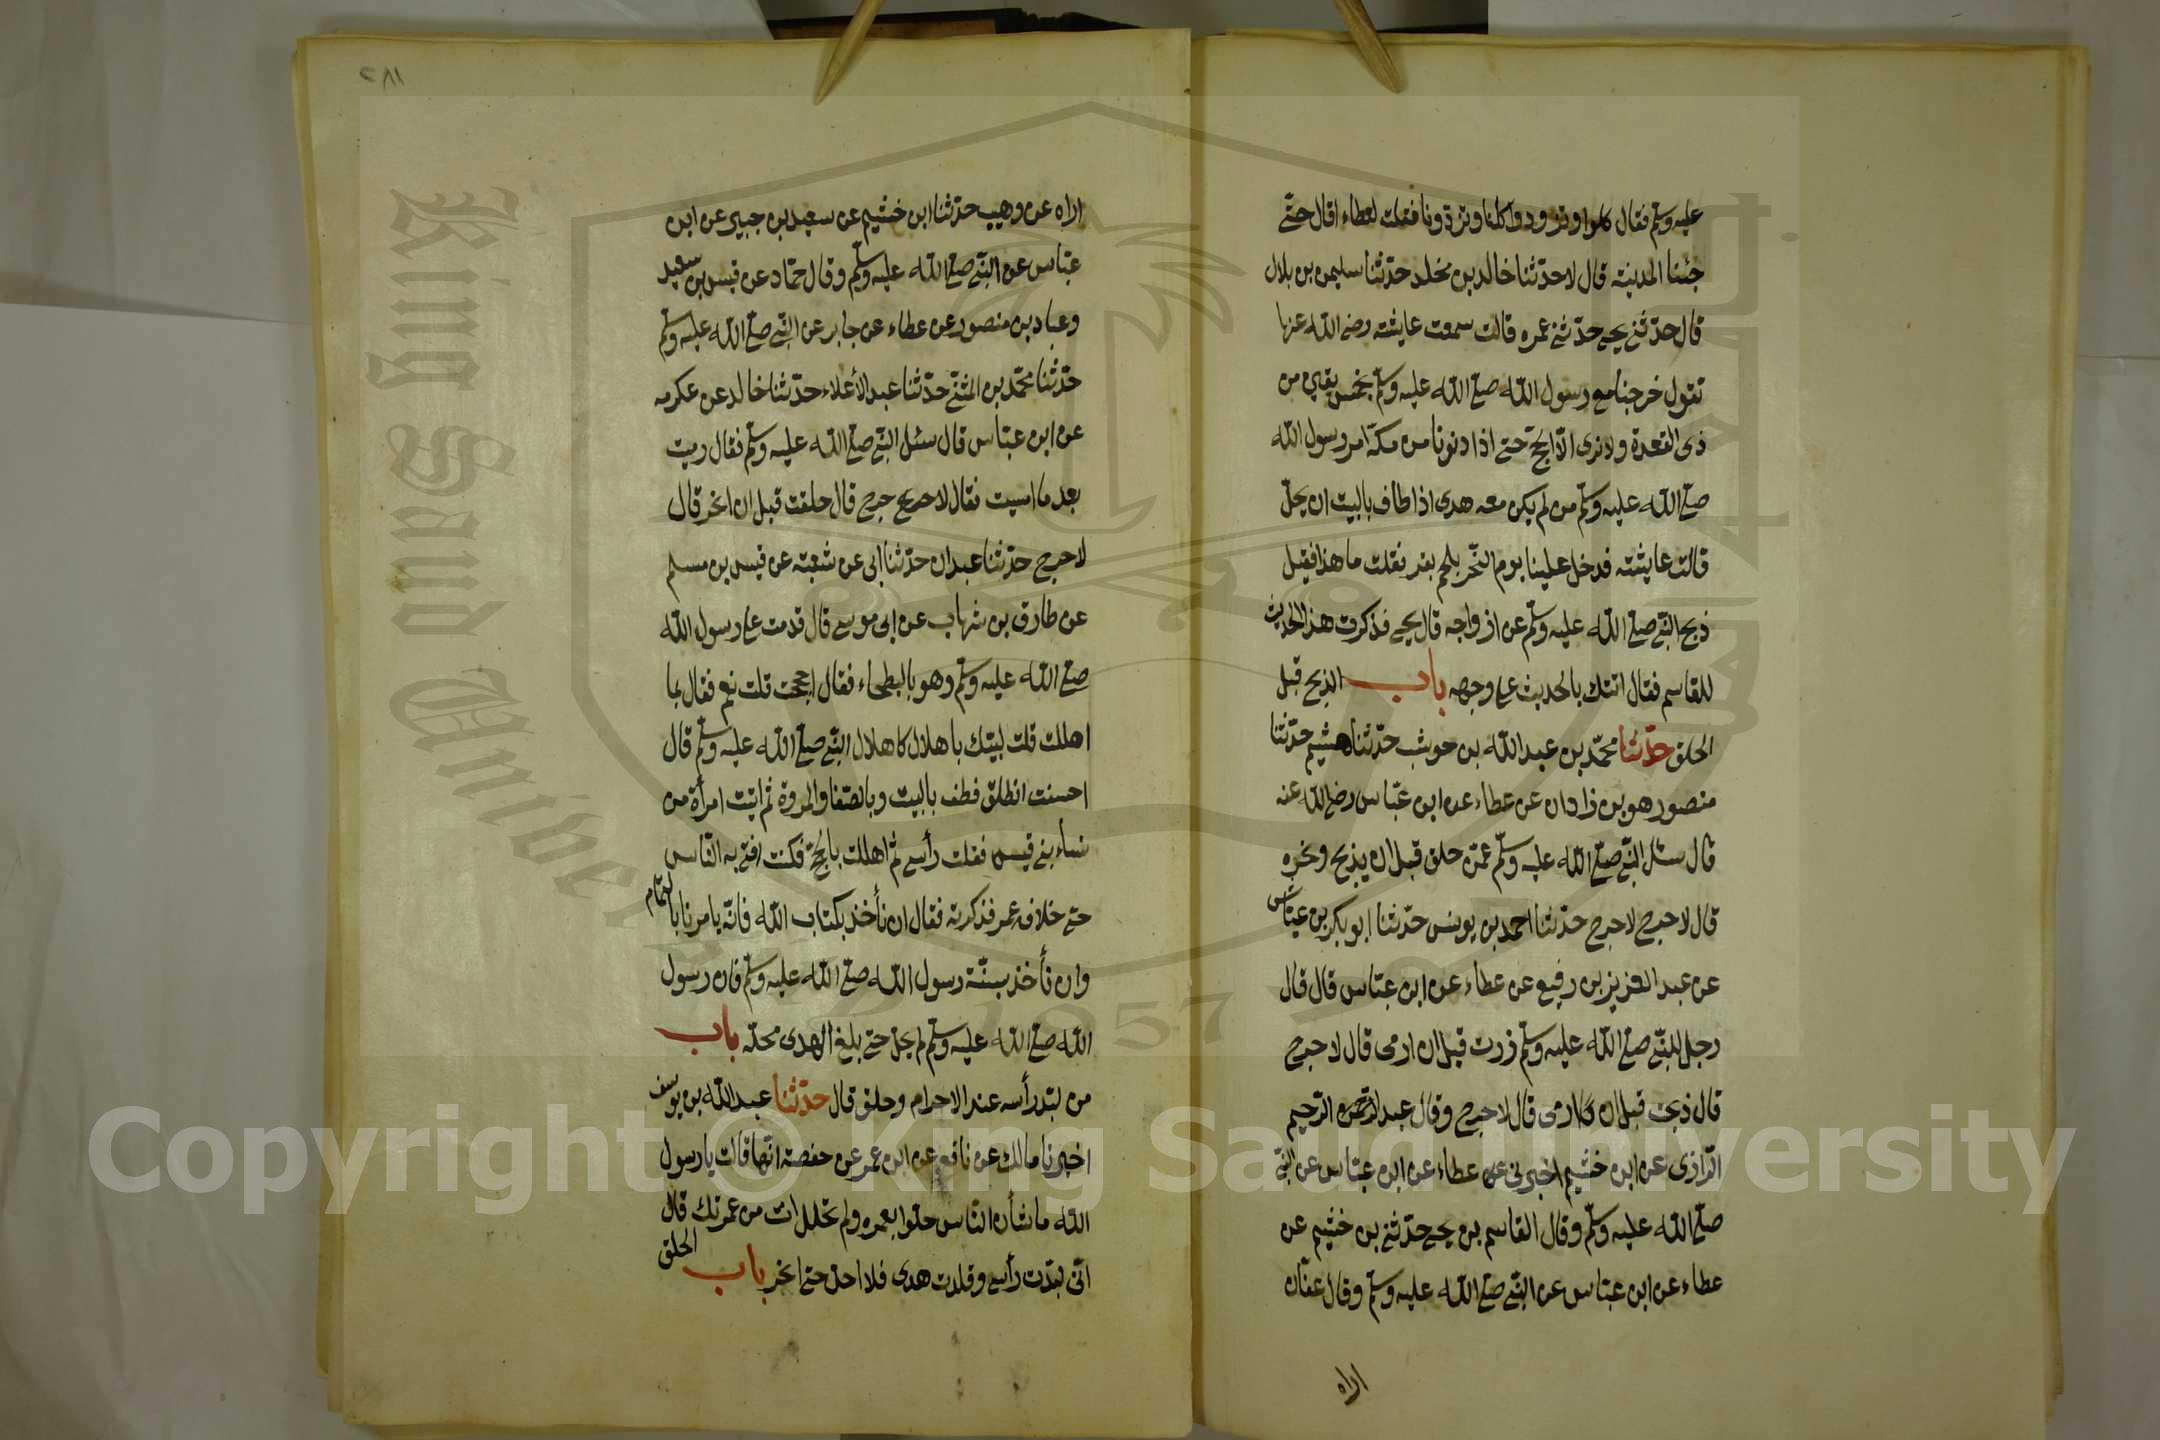 عليه وسلّم فقال كلوا وتزودوا فاكلنا وتزودنا فقلت لعطاء اقال حتّى
جئنا المدينة قال لا حدّثنا خالد بن مخلد حدّثنا سليمن بن بلال
قال حدّثنى يحيى حدّثتنى عمره قالت سمعت عايشة رضى الله عنها
تقول خرجنا مع رسول الله صلى الله عليه وسلّم بخمس بقين من
ذى القعدة ولا نرى الا الحجّ حتى اذا دنونا من مكة امر رسول الله
صلى الله عليه وسلّم من لم يكن معه هدى اذا طاف بالبيت ان يحلّ
قالت عايشة فدخل علينا يوم النّحر بلحم بقر فقلت ما هذا فقيل
ذبح النبّى صلى الله عليه وسلّم عن ازواجه قال يحيى فذكرت هذا الحديث
للقاسم فقال اتتك بالحديث على وجهه باب الذبح قبل
الحلق حدّثنا محمّد بن عبد الله بن حوشب حدّثنا هشيم حدّثنا
منصور هو بن زاذان عن عطاء عن ابن عبّاس رضى الله عنه
قال سئل النبّى صلى الله عليه وسلّم عمّن حلق قبل ان يذبح ونحوه
قال لا حرج لا حرج حدّثنا احمد بن يونس حدّثنا ابو بكر بن عيّاش
عن عبد العزيز بن رفيع عن عطاء عن ابن عبّاس قال قال
رجل للنبّى صلى الله عليه وسلّم زرت قبل ان ارمى قال لا حرج
قال ذبحت قبل ان ارمى قال لا حرج وقال عبد الرّحمن الرّحيم
الرّازى عن ابن خثيم اخبرنى عن عطاء عن ابن عبّاس عن النبّى
صلى الله عليه وسلّم وقال القاسم بن يحيى حدّثنى بن خثيم عن
عطاء عن ابن عبّاس عن النبّى صلى الله عليه وسلّم وقال عفّان
اراه
١٨٢
اراه عن وهيب حدّثنا ابن خثيم عن سعيد بن جبير عن ابن
عبّاس عن النبّى صلى الله عليه وسلّم وقال حمّاد عن قيس بن سعيد
وعباد بن منصور عن عطاء عن جابر عن النبّى صلى الله عليه وسلّم
حدّثنا محمّد بن المثنّى حدّثنا عبد الأعلاء حدّثنا خالد عن عكرمه
عن ابن عبّاس قال سئل النبّى صلى الله عليه وسلّم فقال رميت
بعد ما امسيت فقال لا حرج قال حلقت قبل ان انحر قال
لا حرج حدّثنا عبدان حدّثنا ابى عن شعبة عن قيس بن مسلم
عن طارق بن شهاب عن ابى موسى قال قدمت على رسول الله
صلى الله عليه وسلّم وهو بالبطحاء فقال احججت قلت نعم فقال بما
اهللت قلت لبيّك باهلال كاهلال النبّى صلى الله عليه وسلّم قال
احسنت انطلق فطف بالبيت وبالصّفا والمروة ثم اتيت امرأة من
نساء بنى قيس ففلت رأسى ثم اهللت بالحجّ فكنت افتى به النّاس
حتى خلافه عمر فذكرته فقال ان نأخذ بكتاب الله فانّه يامرنا بالتمام
وان نأخذ بسنّة رسول الله صلى الله عليه وسلّم فان رسول
الله صلى الله عليه وسلّم لم يحلّ حتى بلغ الهدى محلّه باب
من لبّد رأسه عند الاحرام وحلق قال حدّثنا عبد الله بن يوسف
اخبرنا مالك عن نافع عن ابن عمر عن حفصة انّها قالت يا رسول
الله ما شأن النّاس حلّوا بعمره ولم تحلل انت من عمرتك قال
انّى لبّدت رأسى وقلدت هدى فلا احلّ حتى انحر باب الحلق
King Saud University
1957
Copyright © King Saud University